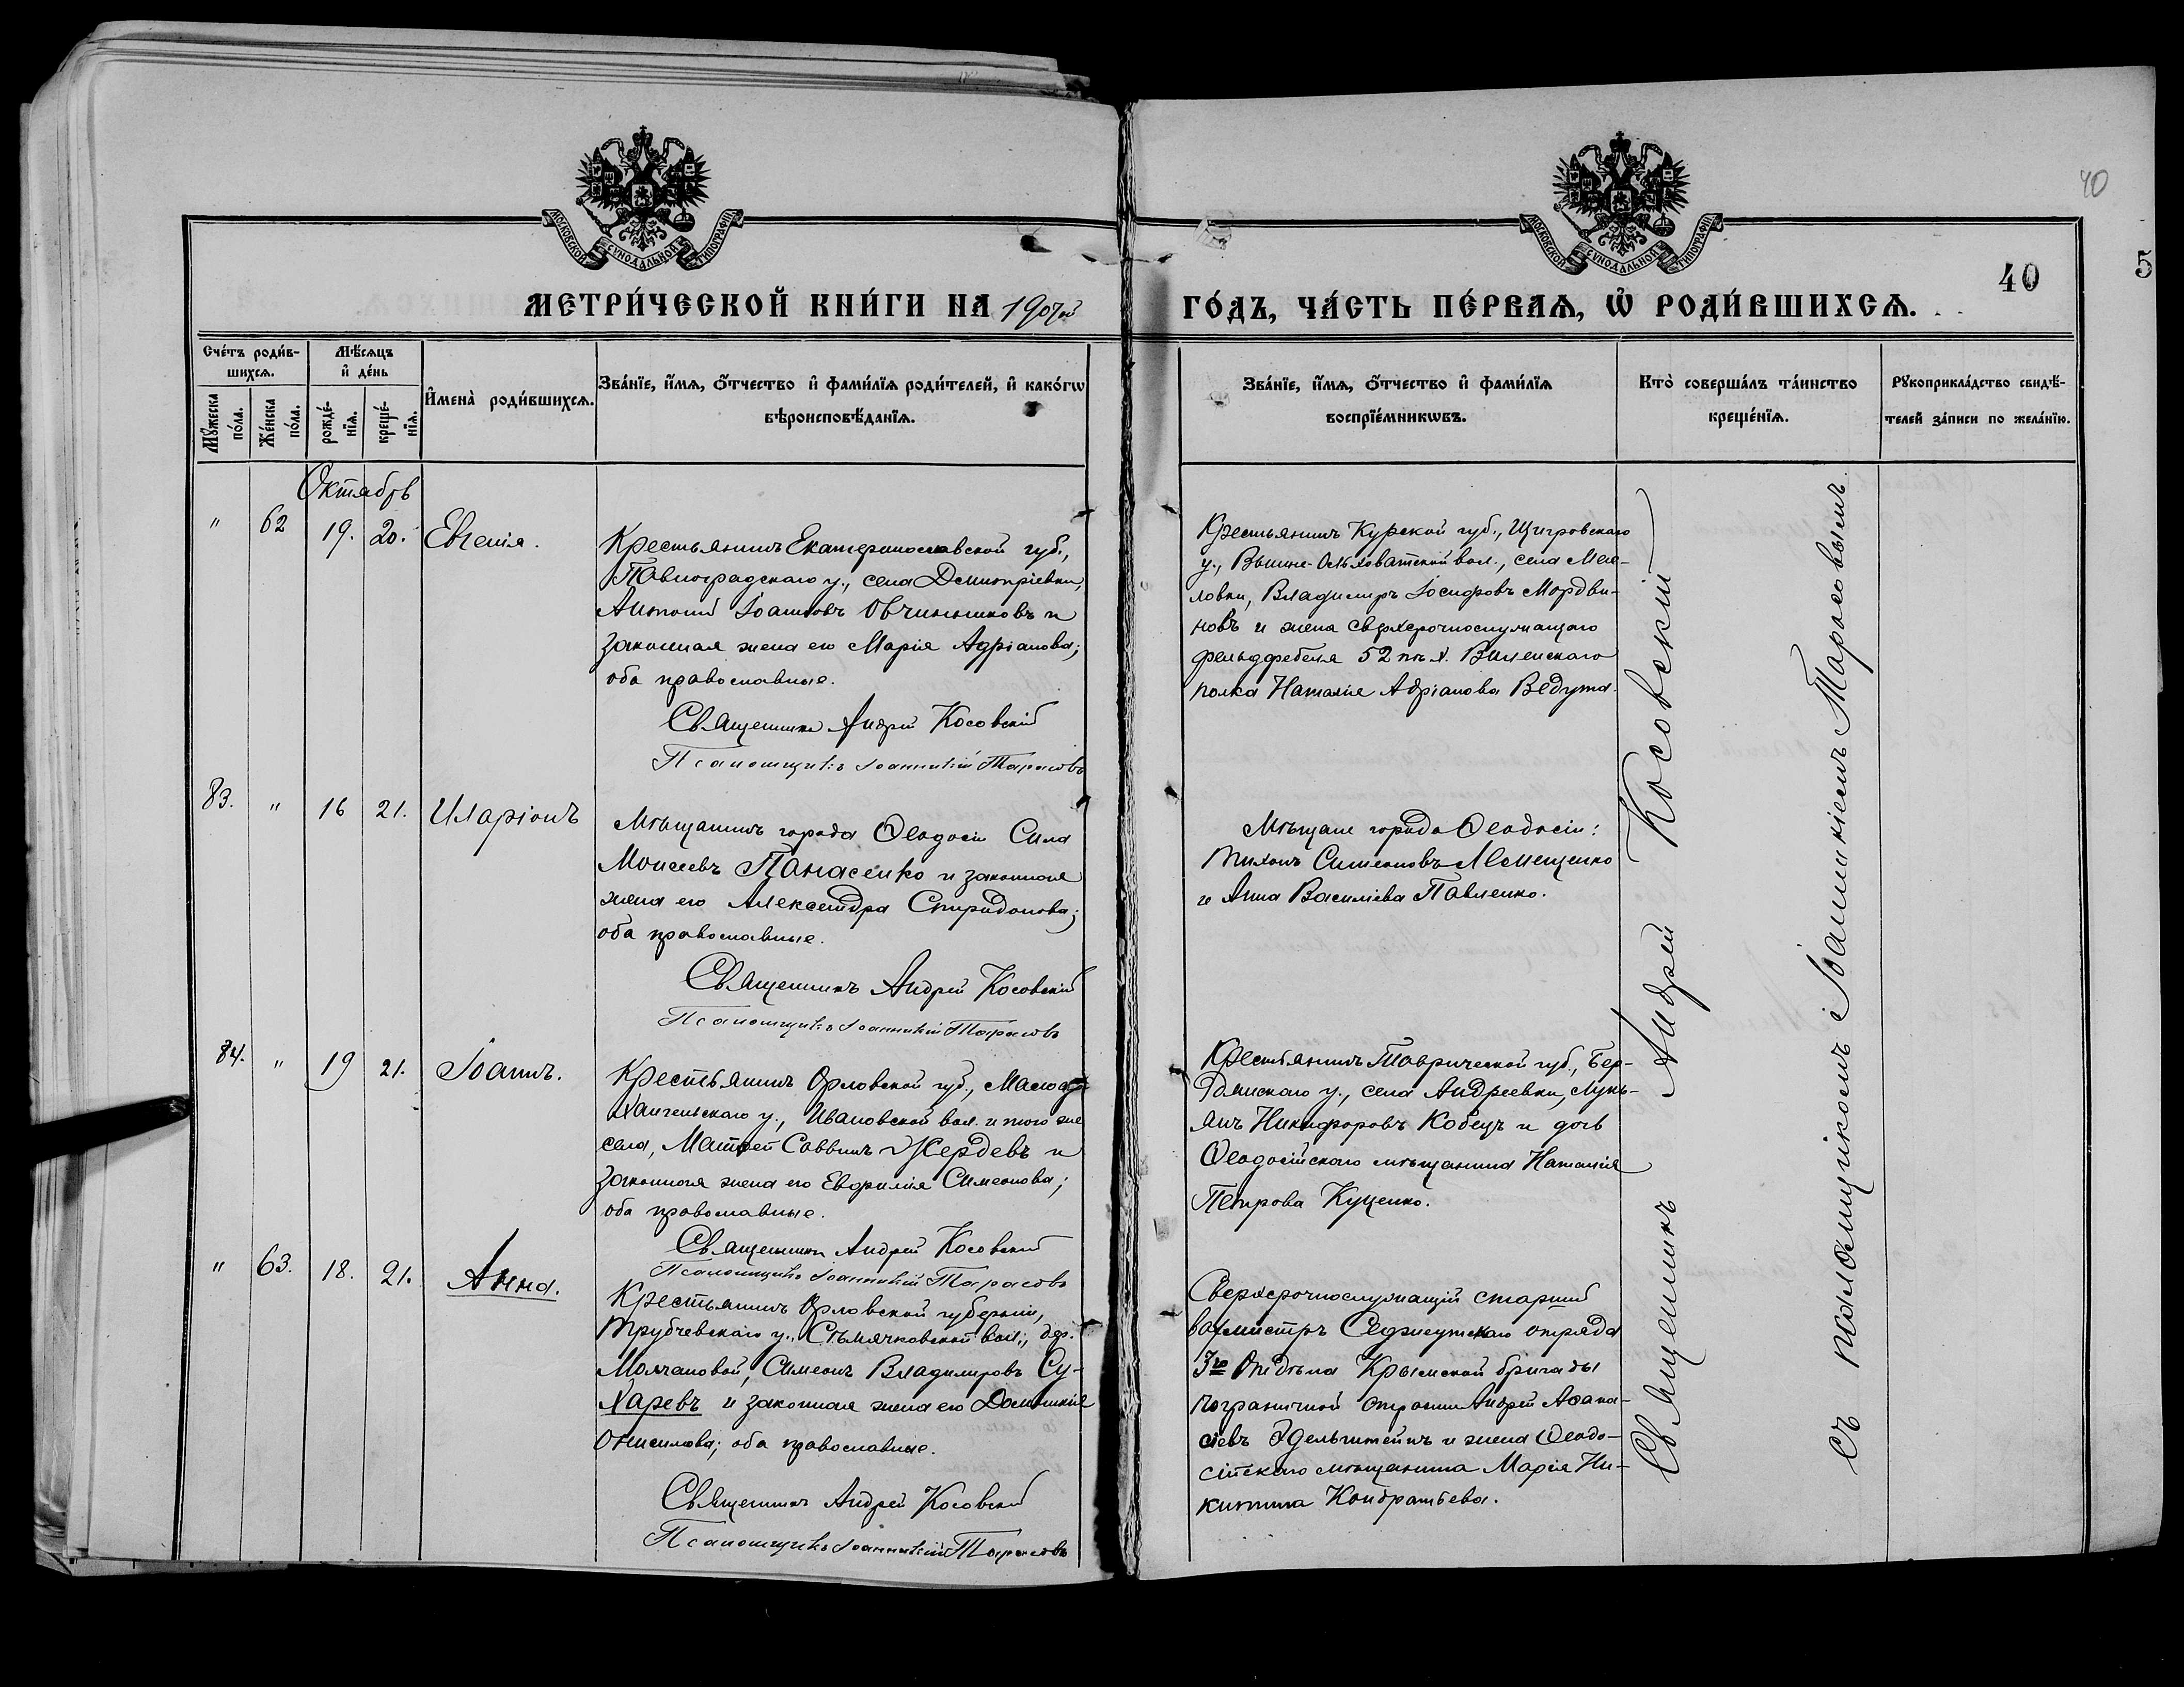 40
40
5
МОСКОВСКОЙ СУНОДАЛЬНОЙ ТИПОГРАФІИ
МОСКОВСКОЙ СУНОДАЛЬНОЙ ТИПОГРАФІИ
МЕТРИ́ЧЕСКОЙ КНИ́ГИ НА 1907й ГО́ДЪ, ЧА́СТЬ ПЕ́РВАѦ, Ѡ҆ РОДИ́ВШИХСѦ.
Сче́тъ роди́в-
шихсѧ.
Мꙋ́жеска по́ла.
Же́нска по́ла.
Мѣ́сѧцъ
и҆ де́нь
рожде́-
нїѧ.
креще́-
нїѧ.
И҆мена̀ роди́вшихсѧ.
Зва́нїе, и҆́мѧ, ѻ҆́тчество и҆ фами́лїѧ роди́телей, и҆ како́гѡ
вѣроисповѣ́данїѧ.
Зва́нїе, и҆́мѧ, ѻ҆́тчество и҆ фами́лїѧ
воспрїе́мникѡвъ.
Кто̀ соверша́лъ та́инство
креще́нїѧ.
Рꙋкоприкла́дство свидѣ́-
телей за́писи по жела́нїю.
Октябрь
" 62 19. 20. Евгенія.
Крестьянинъ Екатеринославской губ.,
Павлоградскаго у., села Дмитріевки,
Антоній Іоанновъ Овчинниковъ и
законная жена его Марія Адріанова;
оба православные.
Священникъ Андрей Косовскій
Псаломщикъ Іоанникій Тарасовъ
Крестьянинъ Курской губ., Щигровскаго
у., Вышне-Ольховатской вол., села Мел-
ловки, Владиміръ Іосифовъ Мордви-
новъ и жена сверхсрочнослужащаго
фельдфебеля 52 пѣх. Виленскаго
полка Наталія Адріанова Ведута.
83. " 16 21. Иларіонъ
Мѣщанинъ города Ѳеодосіи Сила
Моисеевъ Панасенко и законная
жена его Александра Спиридонова;
оба православные.
Священникъ Андрей Косовскій
Псаломщикъ Іоанникій Тарасовъ
Мѣщане города Ѳеодосіи:
Тихонъ Симеоновъ Клемещенко
и Анна Василіева Павленко.
84. " 19 21. Іоаннъ.
Крестьянинъ Орловской губ., Малоар-
хангельскаго у., Ивановской вол. и того же
села, Матѳей Саввинъ Жердевъ и
законная жена его Евфимія Симеонова;
оба православные.
Священникъ Андрей Косовскій
Псаломщикъ Іоанникій Тарасовъ
Крестьянинъ Таврической губ., Бер-
дянскаго у., села Андреевки, Лукь-
янъ Никифоровъ Кобецъ и дочь
Ѳеодосійскаго мѣщанина Наталія
Петрова Куценко.
" 63. 18. 21. Анна.
Крестьянинъ Орловской губерніи,
Трубчевскаго у., Сѣмячковской вол., дер.
Молчановой, Симеонъ Владиміровъ Су-
харевъ и законная жена его Домникія
Онисимова; оба православные.
Священникъ Андрей Косовскій
Псаломщикъ Іоанникій Тарасовъ
Сверхсрочнослужащій старшій
вахмистръ отряда
3го Отдѣла Крымской бригады
пограничной стражи Андрей Аѳана-
сіевъ Эдельштейнъ и жена Ѳеодо-
сійскаго мѣщанина Марія Ни-
китина Кондратьева.
Священникъ Андрей Косовскій
съ псаломщикомъ Іоанникіемъ Тарасовымъ.